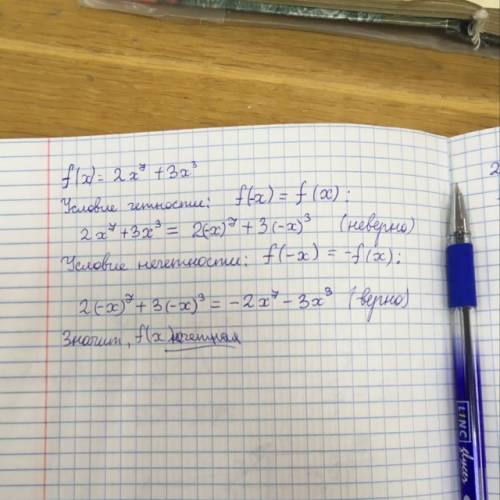 f(x) = 2x⁷ + 3x³
Условие четности: f(-x) = f(x):
2x⁷ + 3x³ = 2(-x)⁷ + 3(-x)³ (неверно)
Условие нечетности: f(-x) = -f(x):
2(-x)⁷ + 3(-x)³ = -2x⁷ - 3x³ (верно)
Значит, f(x) нечетная
LINC
2